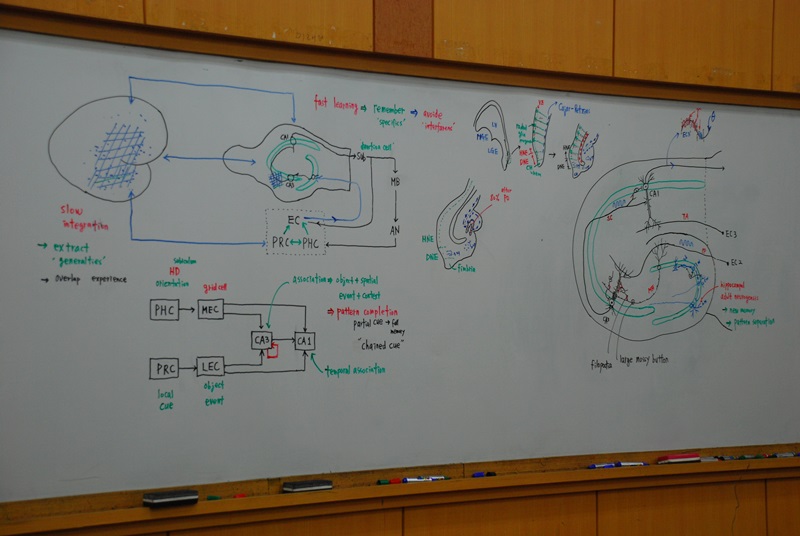 fast learning ⇒ remember "specifics" ⇒ avoid "interference"
CA1
CA3
Sub
MB
AN
EC
PRC ↔ PHC
slow integration
→ extract "generalities"
→ overlap experience
HD
orientation
grid cell
PHC
MEC
PRC
LEC
CA3
CA1
local cue
object
event
association ⇒ object + spatial
event + context
⇒ pattern completion
partial cue → full memory
"chained cue"
temporal association
MGE
LGE
HNE
DNE
Fimbria
after
CA1
SC
TA
EC3
EC2
CA3
hippocampal
adult neurogenesis
→ new memory
→ pattern separation
large mossy button